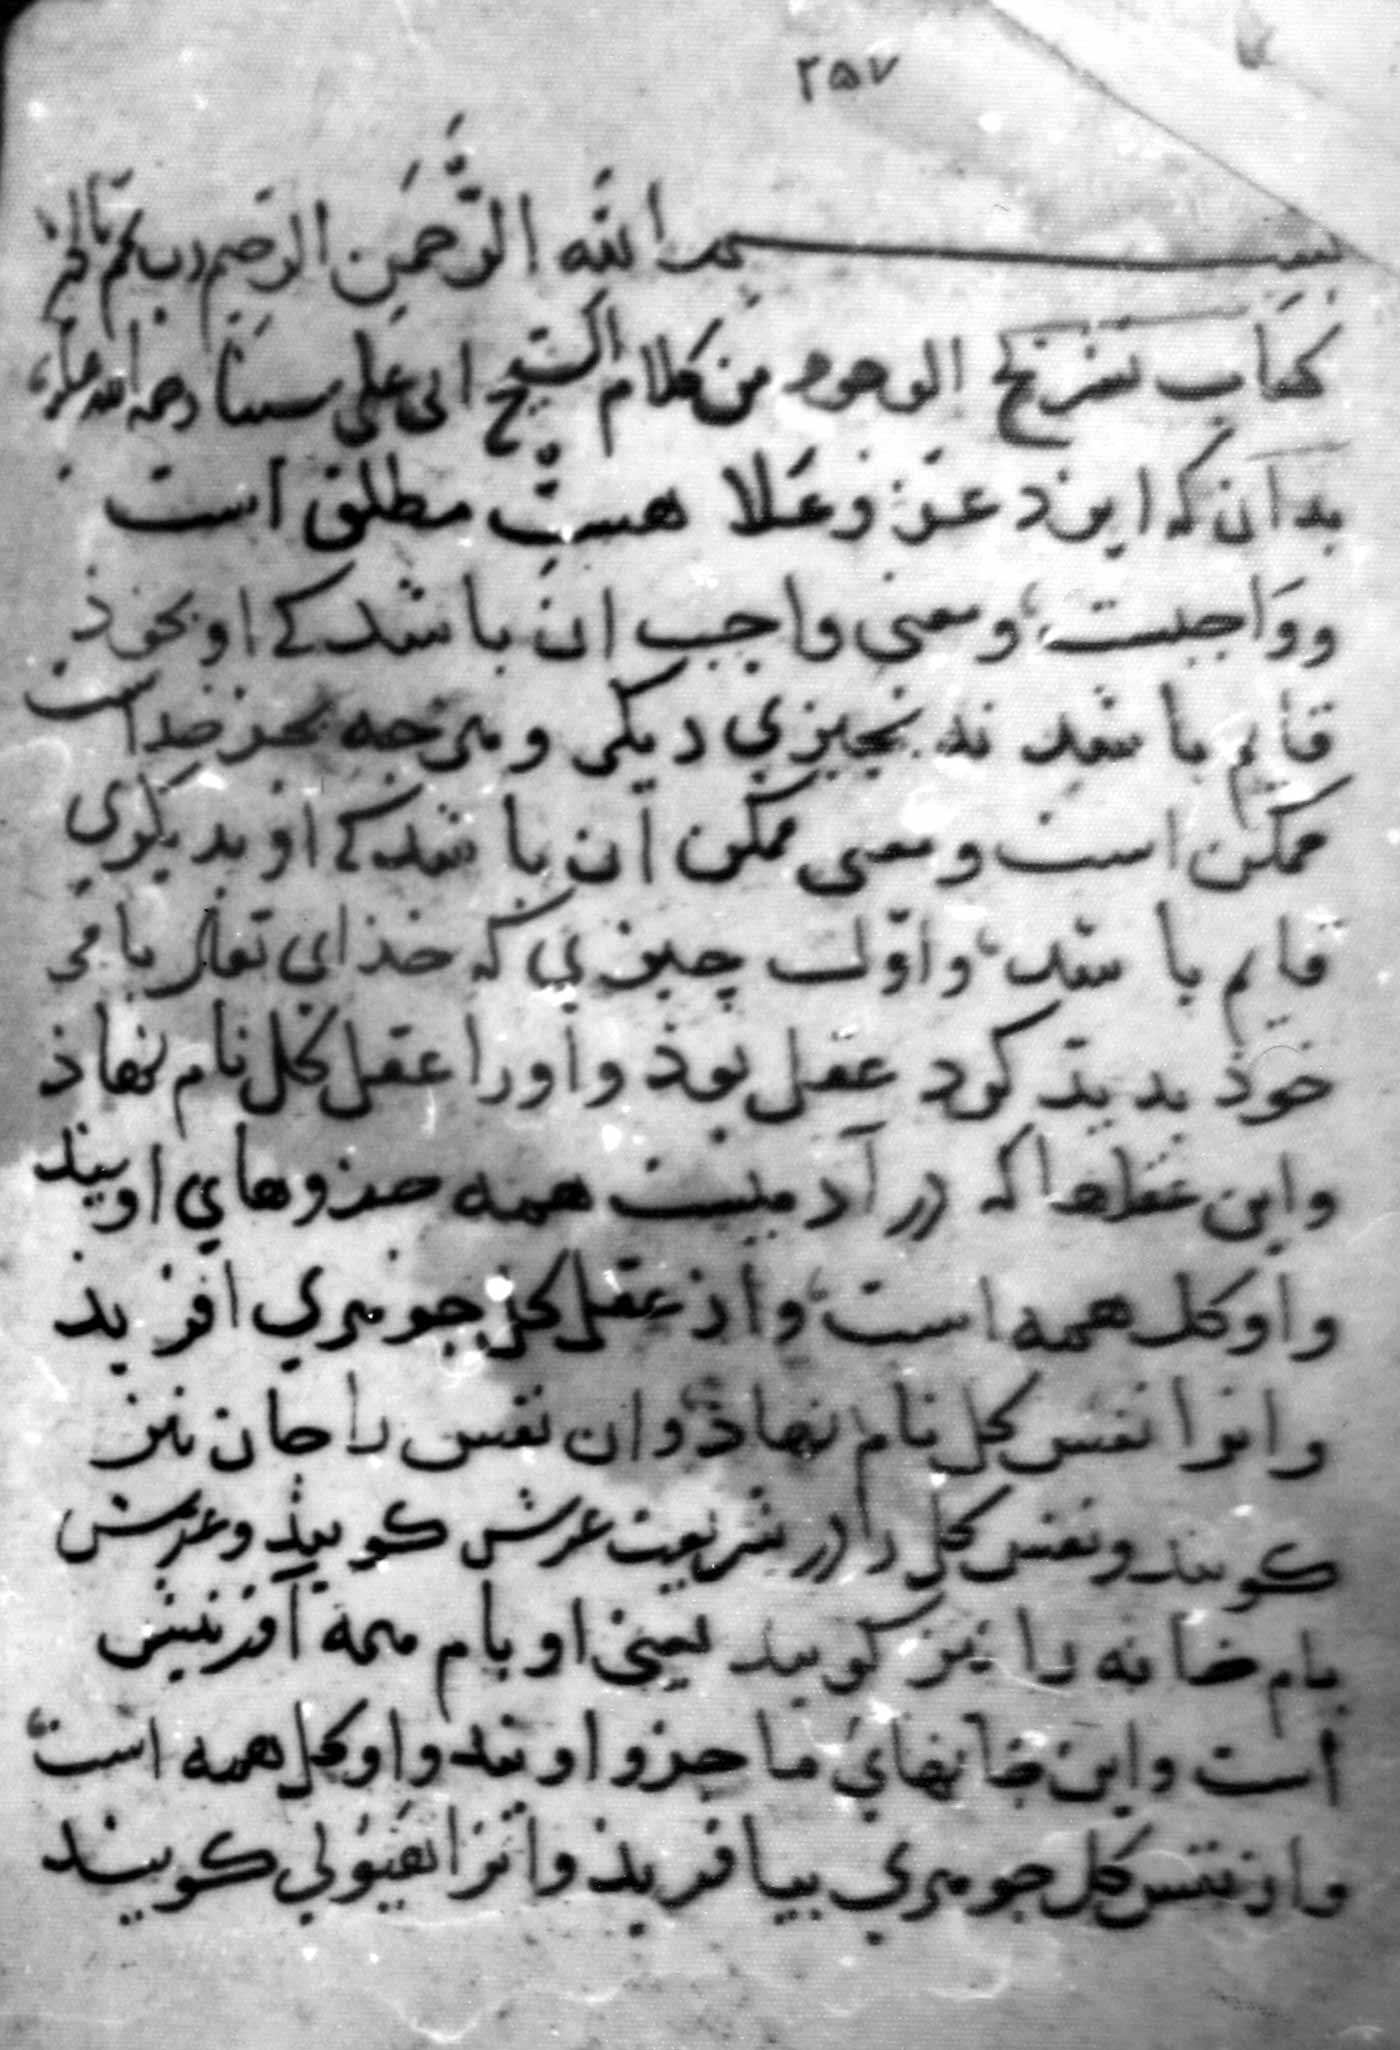 ۲۵۷
بسم الله الرحمن الرحیم رب تمم بالخیر
کتاب تشریح الوجود من کلام الشیخ ابی علی سینا رحمه الله علیه
بدان که ایزد عز و علا هستی مطلق است
و واجبست، و معنی واجب ان باشد کی او بخوذ
قایم باشد نه بچیزی دیکر و هرچه بجز خداست
ممکن است و معنی ممکن آن باشد کی او بدیکری
قایم باشد، و اوّل چیزی که خذای تعالی با مر
خوذ بدید کرد عقل بوذ و او را عقل کل نام نهاذ
و این عقلها که در آدمیست همه جزوهای اویند
و او کل همه است، و از عقل کل جوهری آفرید
و انرا نفس کل نام نهاذ و ان نفس را جان نیز
کویند و نفس کل را در شریعت عرش کویند و عرش
بام خانه را نیز کویند یعنی او بام همه آفرینش
است و این خانهای ما جزو اویند و او کل همه است
و از نفس کل جوهری بیافریذ و انرا هیولی کویند